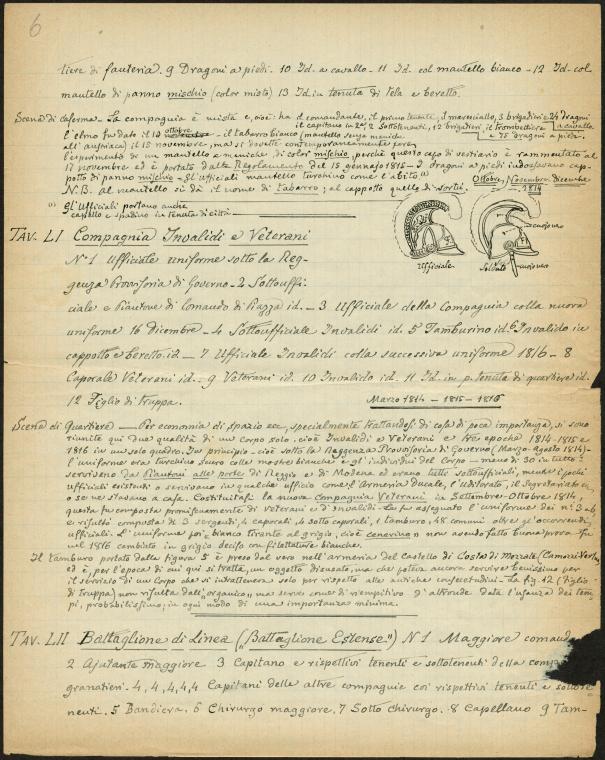 6
tiere di fanteria. 9 Dragoni a piedi. 10 Id. a cavallo - 11 Id. col mantello bianco - 12 Id. col
mantello di panno mischio (color misto) 13 Id. in tenuta di tela e beretto.
Scena di Caserma. La compagnia è mista e, cioè: ha il comandante, il primo tenente, il maresciallo, 3 brigadieri e 24 dragoni a cavallo
il capitano in 2ª, 2 Sottotenenti, 12 brigadieri, il trombettiere e 75 dragoni a piedi.
l'elmo fu dato il 19 ottobre - il tabarro bianco (mantello senza maniche
all'austriaca) il 15 novembre, ma si dovette contemporaneamente fare
l'esperimento di un mantello e maniche di color mischio, perchè questo capo di vestiario è rammentato al
17 novembre ed è portato dalle Regolamento del 15 gennaio 1815 - I dragoni a piedi indossavano cap-
potto di panno mischio - Gli ufficiali mantello turchino come l'abito (1)
N.B. al mantello si dà il nome di tabarro; al cappotto quello di sortù.
Ottobre, Novembre, Dicembre
1814
(1) Gli Ufficiali portano anche
cappello e spadino in tenuta di città -
cuoio nero
Ufficiale
Soldato
cuoio nero
Tav. LI Compagnia Invalidi e Veterani
N. 1 Ufficiale uniforme sotto la Reg-
genza Provvisoria di Governo - 2 Sottouffi-
ciale e Piantone di Comando di Piazza id. - 3 Ufficiale della Compagnia colla nuova
uniforme 16 dicembre - 4 Sottoufficiale Invalidi id. 5 Tamburino id. 6 Invalido in
cappotto e beretto. id - 7 Ufficiale Invalidi colla successiva uniforme 1816 - 8
Caporale Veterani id - 9 Veterani id. 10 Invalido id. 11 Id. in p. tenuta di quartiere id.
12 Figlio di truppa.
Marzo 1814 - 1815 - 1816
Scena di Quartiere - Per economia di spazio ecc, specialmente trattandosi di cosa di poca importanza, si sono
riunite qui due qualità di un Corpo solo. cioè Invalidi e Veterani e tre epoche 1814 - 1815 e
1816 in un solo quadro. In principio - cioè sotto la Reggenza Provvisoria di Governo (Marzo-Agosto 1814) -
l'uniforme era turchino scuro colle mostre bianche e gl'individui del Corpo - meno di 30 in tutto -
servivano da Piantoni alle porte di Reggio e di Modena ed erano tutti sottoufficiali, mentre i pochi
ufficiali esistenti o servivano in qualche ufficio come l'Armeria Ducale, l'Uditorato, il Segretariato ec,
o se ne stavano a casa. Costituitasi la nuova compagnia Veterani in Settembre-Ottobre 1814,
questa fu composta promiscuamente di Veterani e d'Invalidi. La fu assegnato l'uniforme dei n.i 3 a 6
e risultò composta di 3 sergenti, 4 caporali, 4 sotto caporali, 1 tamburo, 48 comuni oltre gl'occorrenti
ufficiali. L'uniforme poi "bianco tirante al grigio, cioè cenerino" non avendo fatto buona prova fu
nel 1816 cambiato in grigio deciso con filettature bianche.
Il tamburo portato dalla figura 5 è preso dal vero nell'armeria del Castello di Costa di Mezzate
ed è, per l'epoca di cui qui si tratta, un oggetto disusato, ma che poteva ancora servire benissimo per
il servizio di un Corpo che si intratteneva solo per rispetto alle antiche consuetudini - La fig. 12 (figlio
di truppa) non risulta dall'"organico" ma serve come di riempitivo d'altronde data l'usanza dei tem-
pi, probabilissimo; in ogni modo di una importanza minima.
Tav. LII Battaglione di Linea ("Battaglione Estense") N 1 Maggiore
2 Ajutante maggiore 3 Capitano e rispettivi tenenti e sottotenenti della
granatieri. 4, 4, 4, 4, 4 Capitani delle altre compagnie coi rispettivi tenenti e
nenti. 5 Bandiera. 6 Chirurgo maggiore. 7 Sotto chirurgo. 8 Capellano 9 Tam-